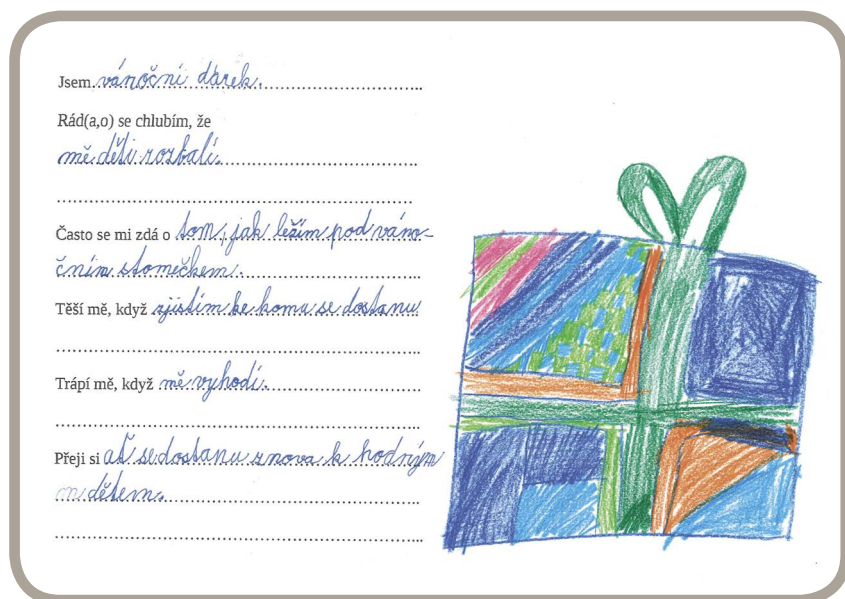 Jsem vánoční dárek.
Rád(a,o) se chlubím, že
mě děti rozbalí.
Často se mi zdá o tom, jak ležím pod váno-
čním stomečkem.
Těší mě, když zjistím ke komu se dostanu
Trápí mě, když mě vyhodí.
Přeji si ať se dostanu znova k hodným
m dětem.